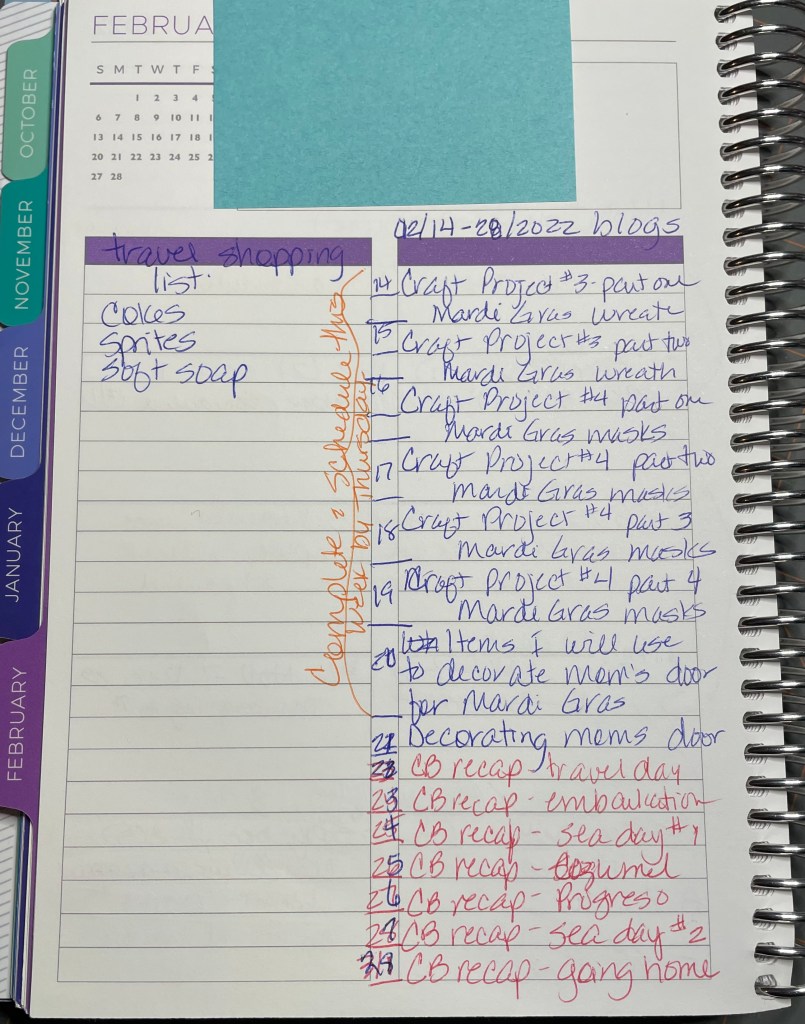 FEBRUA
S M T W T F S
1 2 3 4 5
6 7 8 9 10 11 1
13 14 15 16 17 18 1
20 21 22 23 24 25 2
27 28
OCTOBER
NOVEMBER
DECEMBER
JANUARY
FEBRUARY
travel shopping
list.
Cokes
Sprites
Soft soap
Complete & Schedule this
week by Thursday
02/14-28/2022 blogs
14 Craft Project #3-part one
Mardi Gras wreate
15 Craft Project #3 part two
Mardi Gras wreath
16 Craft Project #4 part one
Mardi Gras masks
17 Craft Project #4 part two
Mardi Gras masks
18 Craft Project #4 part 3
Mardi Gras masks
19 Craft Project #4 part 4
Mardi Gras masks
20 Items I will use
to decorate mom's door
for Mardi Gras
21 Decorating moms door
22 CB recap-travel day
23 CB recap-embarkation
24 CB recap-sea day #1
25 CB recap-Cozumel
26 CB recap-Progreso
CB recap-sea day #2
CB recap-going home